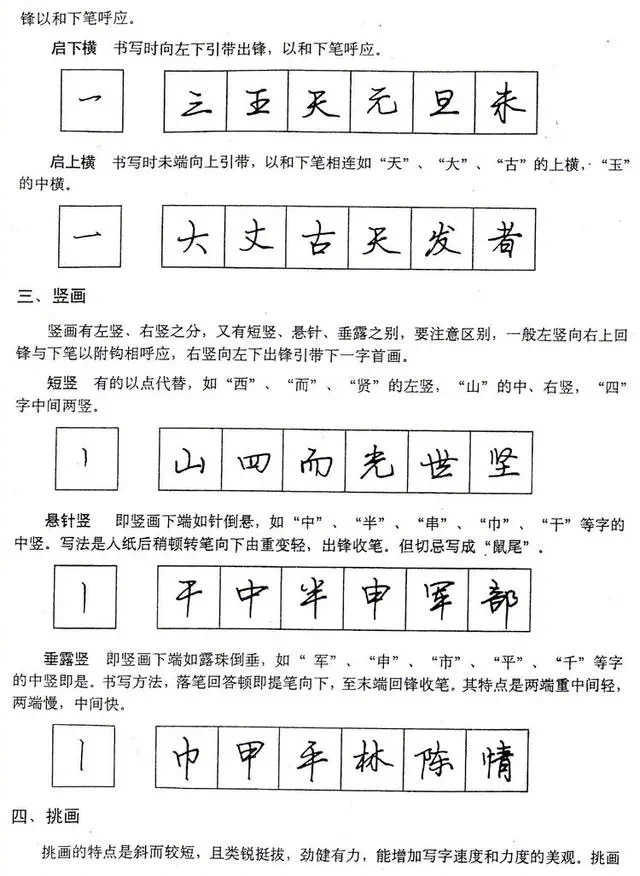 锋以和下笔呼应。
启下横 书写时向左下引带出锋，以和下笔呼应。
一 三 王 天 元 旦 未
启上横 书写时未端向上引带，以和下笔相连如“天”、“大”、“古”的上横，“玉”
的中横。
一 大 丈 古 天 发 者
三、竖画
竖画有左竖、右竖之分，又有短竖、悬针、垂露之别，要注意区别，一般左竖向右上回
锋与下笔以附钩相呼应，右竖向左下出锋引带下一字首画。
短竖 有的以点代替，如“西”、“而”、“贤”的左竖，“山”的中、右竖，“四”
字中间两竖。
丨 山 四 而 光 世 坚
悬针竖 即竖画下端如针倒悬，如“中”、“半”、“串”、“巾”、“干”等字的
中竖。写法是入纸后稍顿转笔向下由重变轻，出锋收笔。但切忌写成“鼠尾”。
丨 干 中 半 申 军 部
垂露竖 即竖画下端如露珠倒垂，如“军”、“申”、“市”、“平”、“千”等字
的中竖即是。书写方法，落笔回答顿即提笔向下，至末端回锋收笔。其特点是两端重中间轻，
两端慢，中间快。
丨 巾 甲 平 林 陈 情
四、挑画
挑画的特点是斜而较短，且类锐挺拔，劲健有力，能增加写字速度和力度的美观。挑画